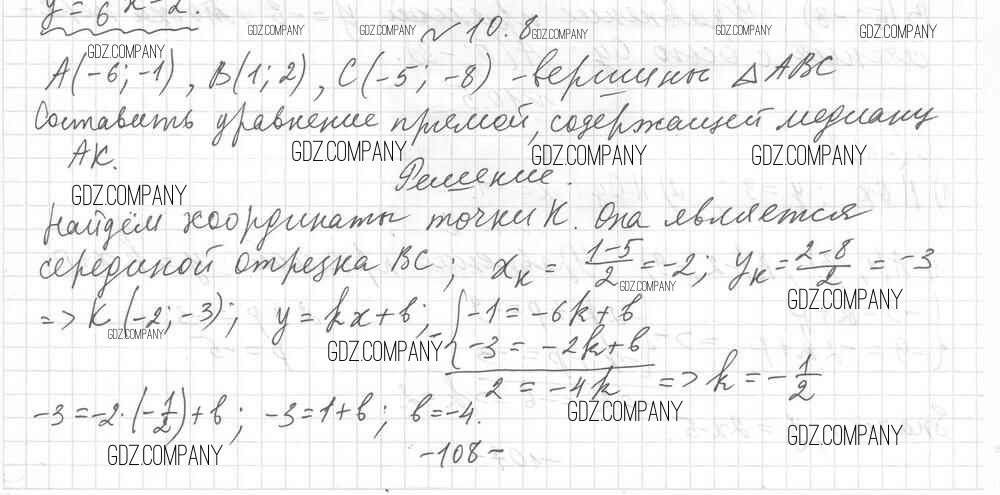 y = 6 x - 2.
GDZ.COMPANY GDZ.COMPANY GDZ.COMPANY GDZ.COMPANY GDZ.COMPANY GDZ.COMPANY
№ 10.8
A(-6; -1), B(1; 2), C(-5; -8) - вершины △ABC
Составить уравнение прямой, содержащей медиану
GDZ.COMPANY GDZ.COMPANY GDZ.COMPANY
AK.
GDZ.COMPANY
Решение.
Найдём координаты точки K. Она является
серединой отрезка BC; x_K = (1-5)/2 = -2; y_K = (2-8)/2 = -3
GDZ.COMPANY GDZ.COMPANY
=> K(-2; -3); y = kx + b; { -1 = -6k + b
GDZ.COMPANY GDZ.COMPANY
-3 = -2k + b
2 = -4k => k = -1/2
GDZ.COMPANY
-3 = -2·(-1/2) + b; -3 = 1 + b; b = -4.
GDZ.COMPANY GDZ.COMPANY
-108-